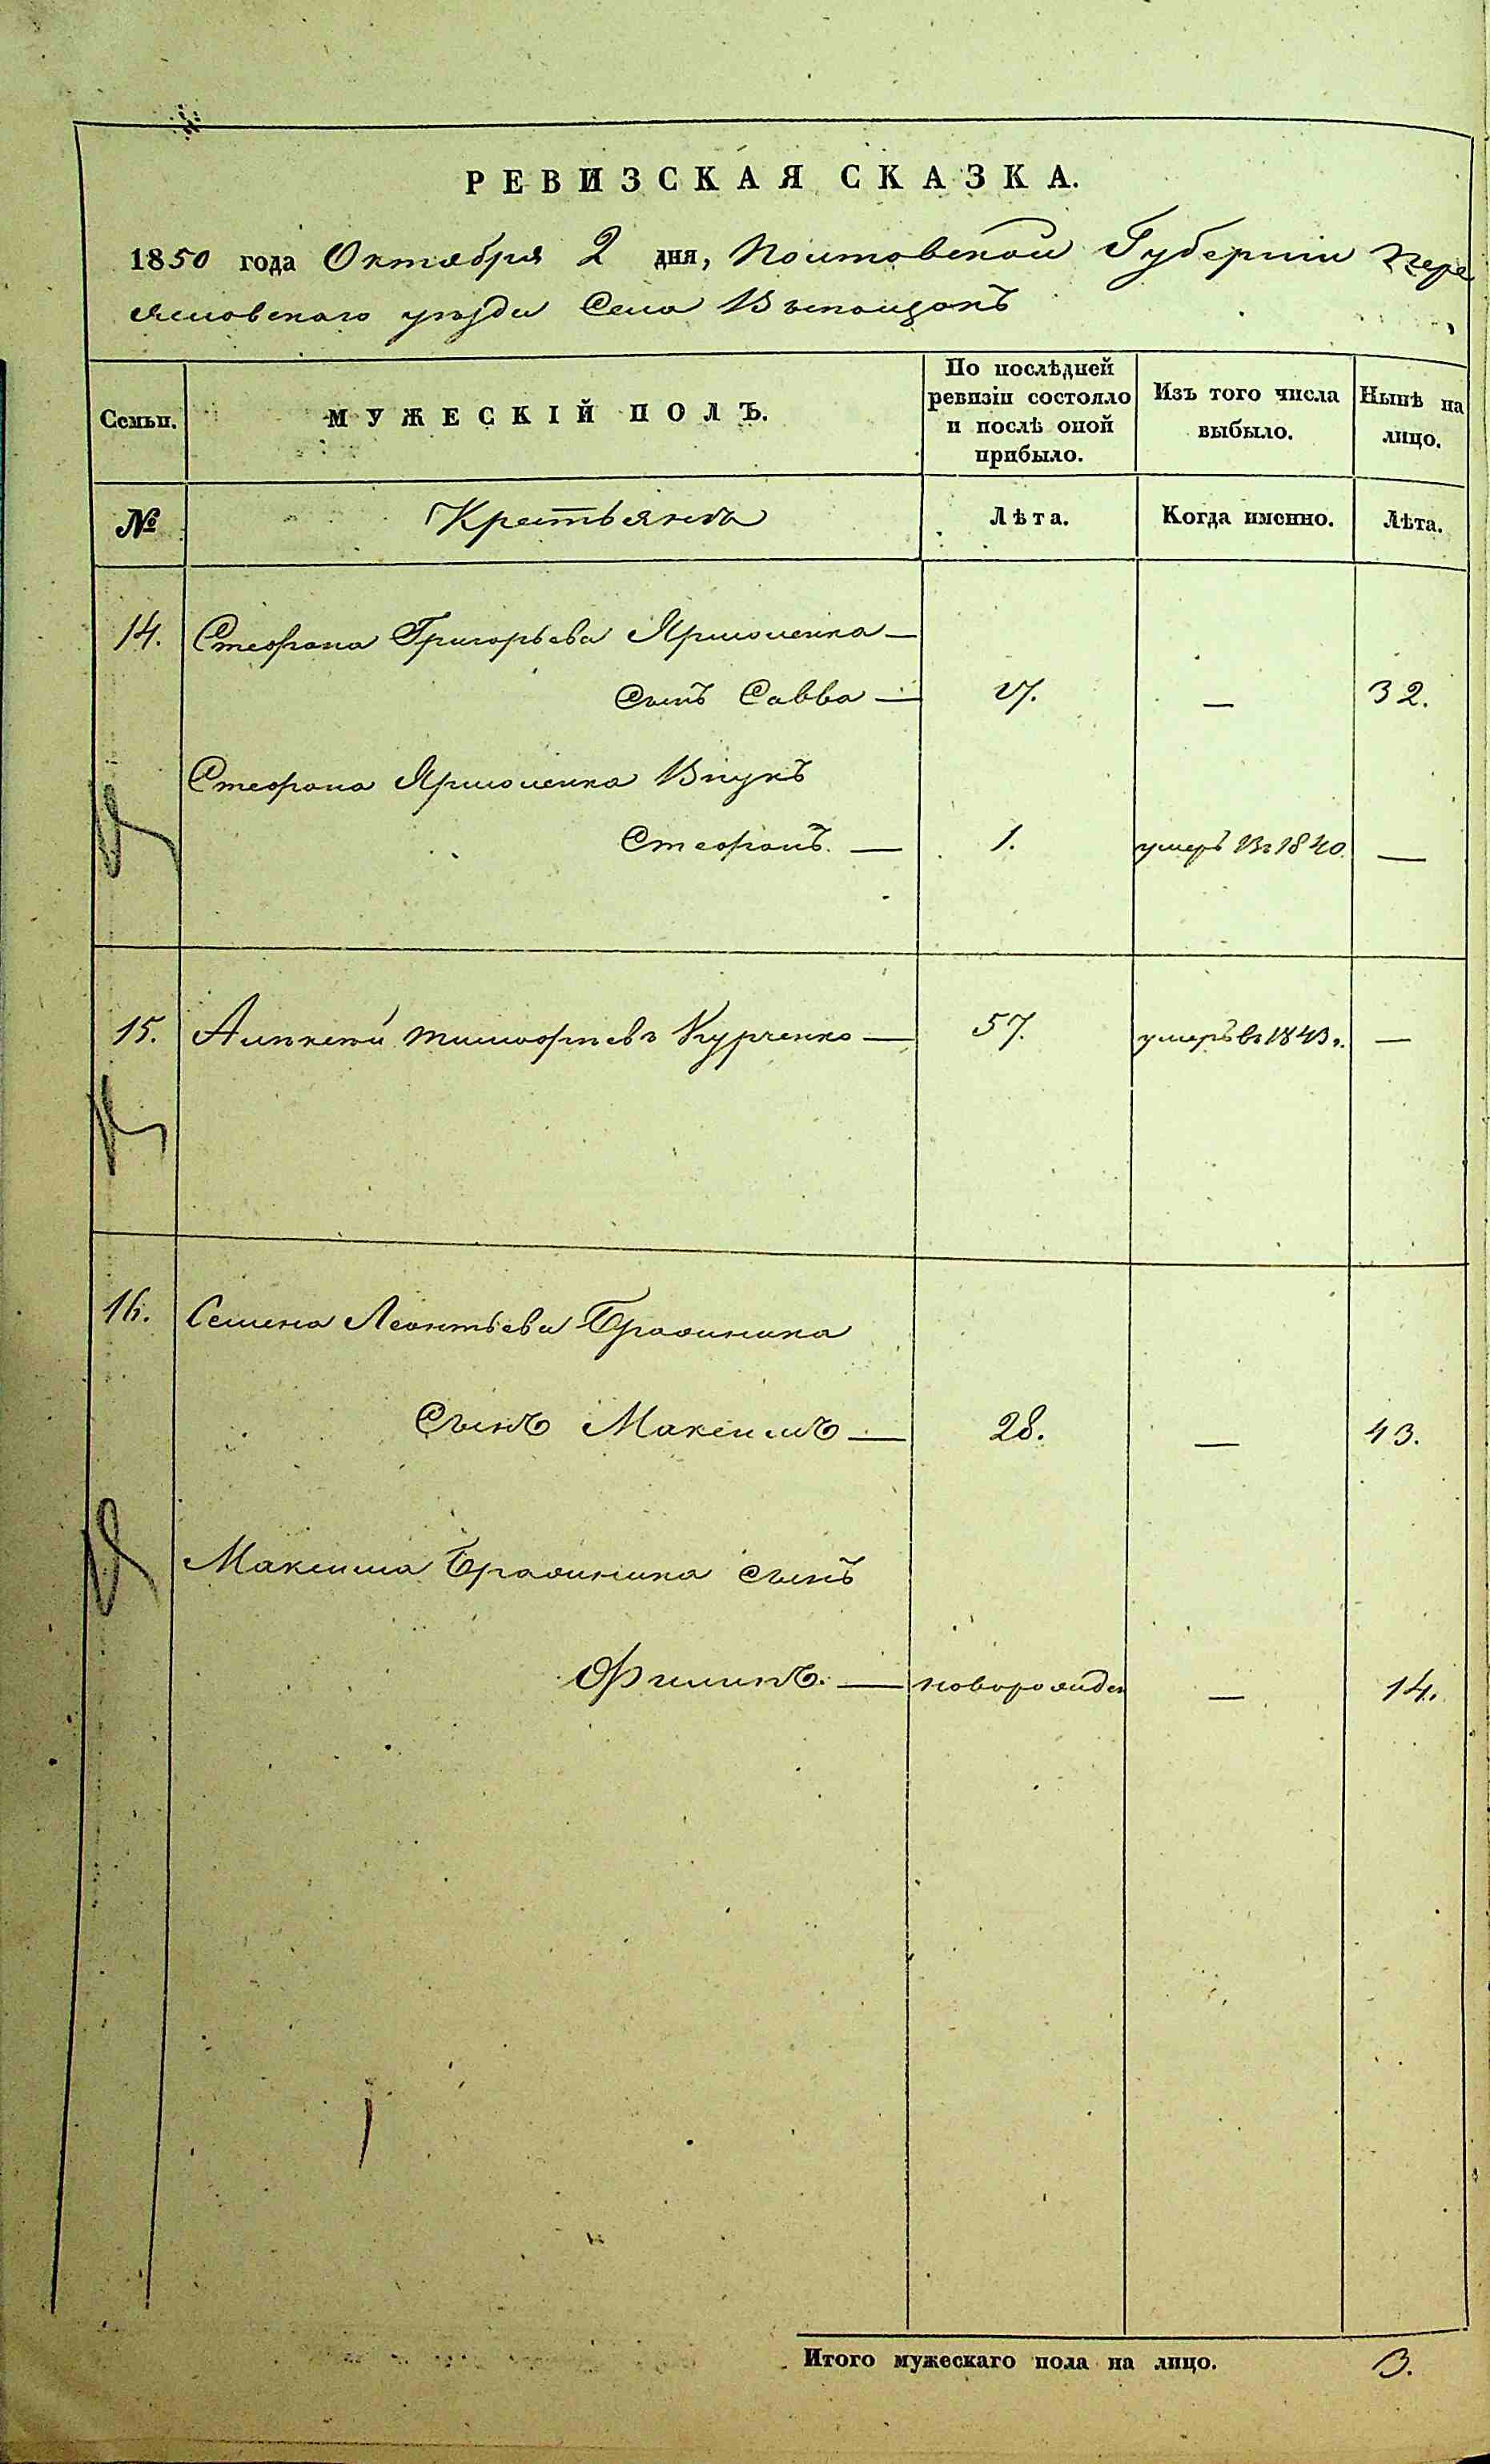 РЕВИЗСКАЯ СКАЗКА.
1850 года Октября 2 дня, Полтовской Губерніи Пере
яславскаго уѣзда Села
Семьи.
МУЖЕСКІЙ ПОЛЪ.
По послѣдней ревизіи состояло и послѣ оной прибыло.
Изъ того числа выбыло.
Нынѣ на лицо.
№
Крестьянъ
Лѣта.
Когда именно.
Лѣта.
14. Стефана Григорьева Ярмоленка —
Сынъ Савва — 17. — 32.
Стефана Ярмоленка Внукъ
Стефанъ. — 1. умеръ Въ 1840 —
15. Алексѣй тимофѣевъ Курченко — 57. умеръ въ 1843 г. —
16. Семена Леонтьева Бражника
Сынъ Максимъ — 28. — 43.
Максима Бражника сынъ
Филипъ. — новорожден — 14.
Итого мужескаго пола на лицо. 3.